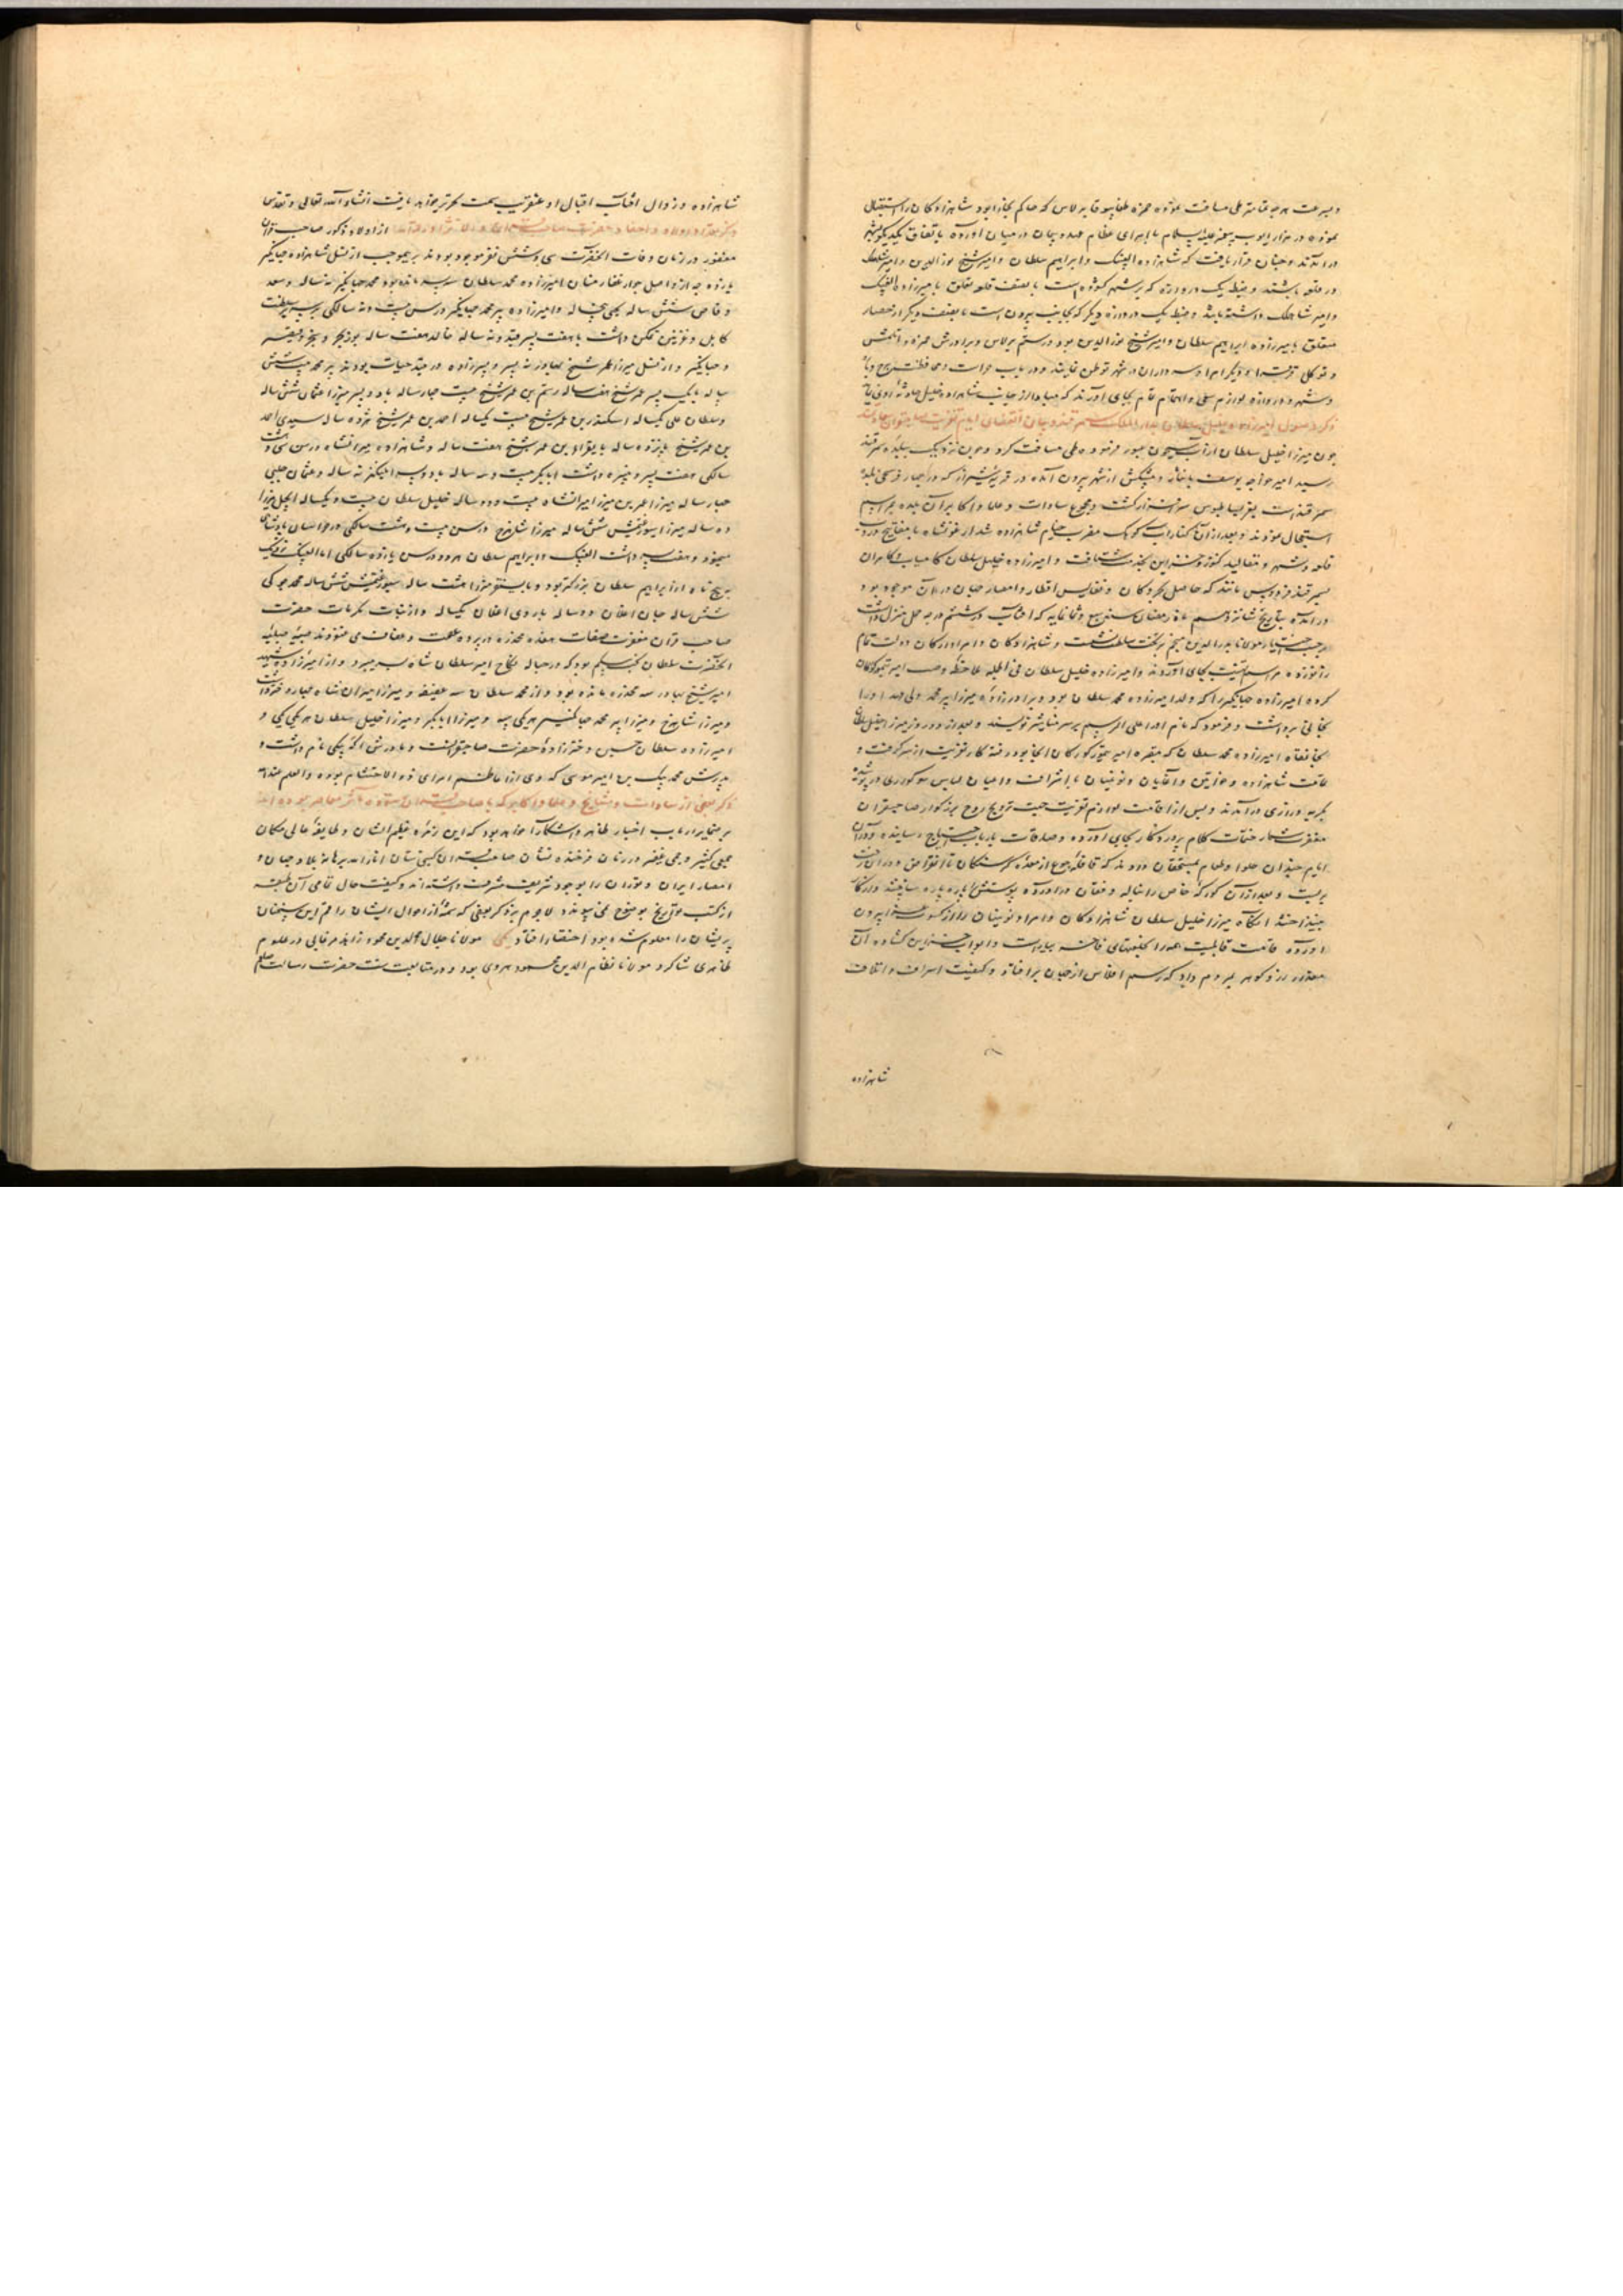 و بسرعت هر چه تمامتر طی مسافت نموده حمزه طغابوقا برلاس که حاکم بخارا بود شاهزادگان را استقبال
نموده در مزار ایوب پیغمبر علیه السلام با امرای عظام عهد و پیمان در میان آورده باتفاق یکدیگر بشهر
در آمدند و چنان قرار یافت که شاهزاده الغبیک و ابراهیم سلطان و امیر شیخ نور الدین و امیر شاهملک
در قلعه باشند و ضبط یک دروازه که بر شهر گشوده است با نصف قلعه تعلق بامیرزاده الغبیک
و امیر شاهملک داشته باشد و ضبط یک دروازه دیگر که بجانب بیرون است با نصف دیگر از حصار
متعلق بامیرزاده ابراهیم سلطان و امیر شیخ نور الدین بود و رستم برلاس و برادرش حمزه و اتلمش
و توکل قرقرا و دیگر امرا و سرداران در شهر توطن نمایند و در باب حراست و محافظت برج و باره
و شهر و دروازه لوازم سعی و اهتمام تمام بجای آورند که مبادا از جانب شاهزاده خلیل حادثه روی نماید
ذکر وصول امیرزاده خلیل سلطان بدار الملک سمرقند و بیان انقضای ایام تعزیت صاحبقران سعادتمند
چون میرزا خلیل سلطان از آب سیحون عبور فرموده طی مسافت کرد و چون نزدیک ببلده سمرقند
رسید امیر خواجه یوسف با خانزاده و پیشکش از شهر بیرون آمده در قریه شیراز که در چهار فرسخی بلده
سمرقند است بتقریب بساط بوس سرافراز گشت و مجموع سادات و علما و اکابر آن بلده مراسم
استقبال نمودند و بعد از آن که کنار آب کوهک مضرب خیام شاهزاده شد ارغونشاه با مفاتیح دروب
قلعه و شهر و مقالید کنوز و خزاین بخدمت شتافت و امیرزاده خلیل سلطان کامیاب و کامران
بسمرقند فردوس مانند که حاصل بحر و کان و نفایس اقطار و امصار جهان در آن موجود بود
در آمده بتاریخ شانزدهم ماه رمضان سنه سبع و ثمانمایه که آفتاب در هشتم درجه حمل منزل داشت
بر حسب اختیار مولانا بدر الدین منجم بر تخت سلطنت نشست و شاهزادگان و امرا و ارکان دولت تمام
زانو زده مراسم تهنیت بجای آوردند و امیرزاده خلیل سلطان فی الجمله ملاحظه وصیت امیر تیمور گورکان
کرده امیرزاده جهانگیر را که ولد امیرزاده محمد سلطان بود و برادرزاده میرزا پیر محمد ولی عهد او را
بخانی برداشت و فرمود که نام او را علی الرسم بر سر مناشیر نویسند و بعد از دو روز میرزا خلیل سلطان
بخانقاه امیرزاده محمد سلطان که مقبره امیر تیمور گورکان آنجا بود رفته کار تعزیت از سر گرفت و
عامت شاهزاده و خواتین و آغایان و نوینیان با اشراف و اعیان لباس سوگواری در پوشیده
بگریه و زاری در آمدند و پس از اقامت لوازم تعزیت جهت ترویح روح بزرگوار صاحبقران
مغفرت شعار ختمات کلام پروردگار بجای آورده و صدقات بارباب احتیاج رسانیده و در آن
ایام چندان حلوا و طعام بمستحقان دادند که قافله جوع از معده گرسنگان تا انقراض دوران رخت
بربست و بعد از آن کورگه خاص را بناله و فغان در آورده پوستش پاره پاره ساختند و از کار
بینداختند آنگاه میرزا خلیل سلطان شاهزادگان و امرا و نوینیان را از کسوت عزا بیرون
آورده قامت قابلیت همه را بخلعتهای فاخره بیاراست و ابواب خزاین گشاده آن
مقدار زر و گوهر بمردم داد که رسم افلاس از جهان بر افتاد و کیفیت اسراف و اتلاف
شاهزاده
شاهزاده و زوال آفتاب اقبال او عنقریب سمت تحریر خواهد یافت انشاء الله تعالی و تقدس
ذکر تعداد اولاد و احفاد حضرت صاحبقران از اولاد ذکور صاحب قران
مغفور در زمان وفات آنحضرت سی و شش نفر موجود بودند بر بموجب از نسل شاهزاده جهانگیر
یازده چه از واصل جوار غفار منان امیرزاده محمد سلطان سه پسر مانده بود محمد جهانگیر نه ساله و سعد
وقاص شش ساله یحیی پنج ساله و امیرزاده پیر محمد جهانگیر در سن بیست و نه سالگی بر سریر سلطنت
کابل و غزنین تمکن داشت با هفت پسر قیدو نه ساله خالد هفت ساله بوزنجر و سنجر و قیصر
و جهانگیر و از نسل میرزا عمر شیخ بهادر نه پسر و پسرزاده در قید حیات بودند پیر محمد بیست و شش
ساله با یک پسر عمر شیخ هفت ساله رستم بن عمر شیخ بیست چهار ساله با دو پسر میرزا عثمان شش ساله
و سلطان علی یکساله اسکندر بن عمر شیخ بیست یکساله احمد بن عمر شیخ هژده ساله سیدی احمد
بن عمر شیخ پانزده ساله بایقرا بن عمر شیخ هفت ساله و شاهزاده میرانشاه در سن سی و هشت
سالگی هفت پسر و نبیره داشت ابابکر بیست و سه ساله با دو پسر ایلنکر نه ساله و عثمان چلبی
چهار ساله میرزا عمر بن میرزا میرانشاه بیست و دو ساله خلیل سلطان بیست و یکساله ایجل میرزا
ده ساله میرزا سیورغتمش شش ساله میرزا شاهرخ در سن بیست و هشت سالگی در خراسان پادشاهی
مینمود و هفت پسر داشت الغبیک و ابراهیم سلطان هر دو در سن یازده سالگی اما الغبیک نزدیک
بپنج ماه از ابراهیم سلطان بزرگتر بود و بایسنقر میرزا هشت ساله سیورغتمش شش ساله محمد جوکی
شش ساله جان اغلان دو ساله باروی اغلان یکساله و از بنات مکرمات حضرت
صاحب قران مغفرت صفات هفده مخدره در پرده عصمت و عفاف می غنودند صبیه صلبیه
آنحضرت سلطان بخت بیگم بود که در حباله نکاح امیر سلیمان شاه بسر میبرد و از امیرزاده شهید
امیر شیخ بهادر سه مخدره مانده بود و از محمد سلطان سه عفیفه و میرزا میران شاه چهار دختر داشت
و میرزا شاهرخ و میرزا پیر محمد جهانگیر هر یکی و میرزا ابابکر و میرزا خلیل سلطان هر یکی یکی و
امیرزاده سلطان حسین دخترزاده حضرت صاحبقرانست و مادرش اکه بیکی نام داشت و
پدرش محمد بیک بن امیر موسی که وی از اعاظم امرای ذو الاحتشام بوده و العلم عند الله
ذکر بعضی از سادات و مشایخ و علما و اکابر که با صاحبقران ستوده مآثر معاصر بوده اند
بر ضمایر ارباب اخبار ظاهر و آشکارا خواهد بود که این زمره عظیم الشان و طایفه عالی مکان
جمعی کثیر و جمی غفیر در زمان فرخنده نشان صاحبقران گیتی ستان انار الله برهانه بلاد جهان و
امصار ایران و توران را بوجود شریف مشرف داشته اند و کیفیت حال تمامی آن طبقه
از کتب تواریخ بوضوح می پیوندد لاجرم بذکر بعضی که شمه از احوال ایشان راقم این سخنان
پریشان را معلوم شده بود اختصار افتاد یکی مولانا جلال الدین محمود زاهد مرغابی در علوم
ظاهری شاگرد مولانا نظام الدین محمود هروی بود و در متابعت سنت حضرت رسالت صلعم